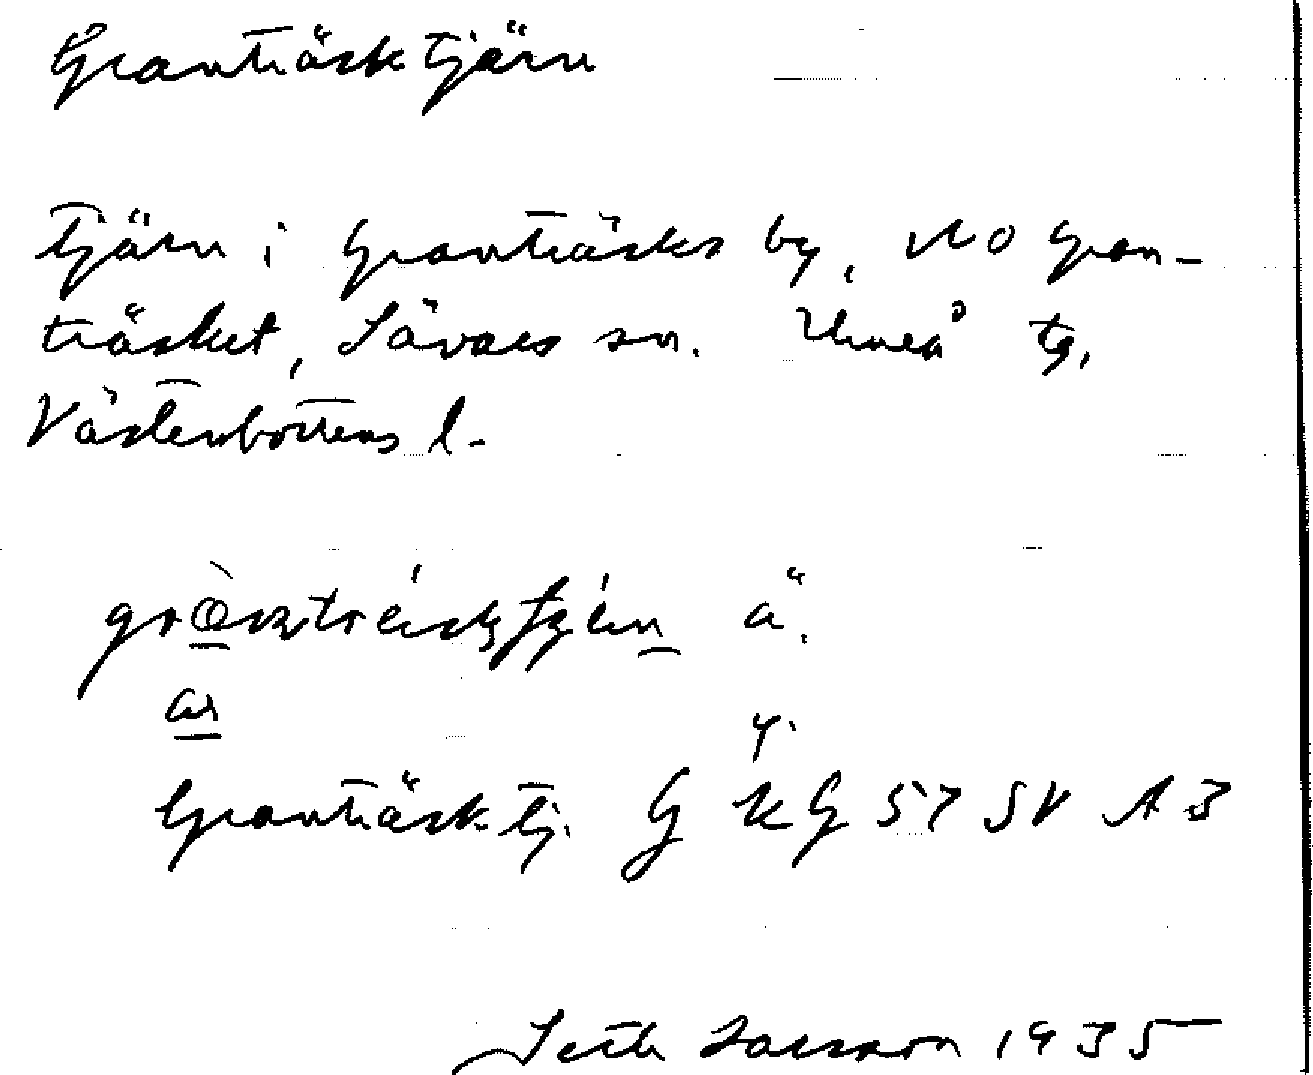 Granträsktjärn
Tjärn i Granträsks by, NO Gran-
träsket, Sävars sn. Umeå tg,
Västerbottens l.
ä.
Granträsktj. G KG 57 SV A 3
Seth Larsson 1935